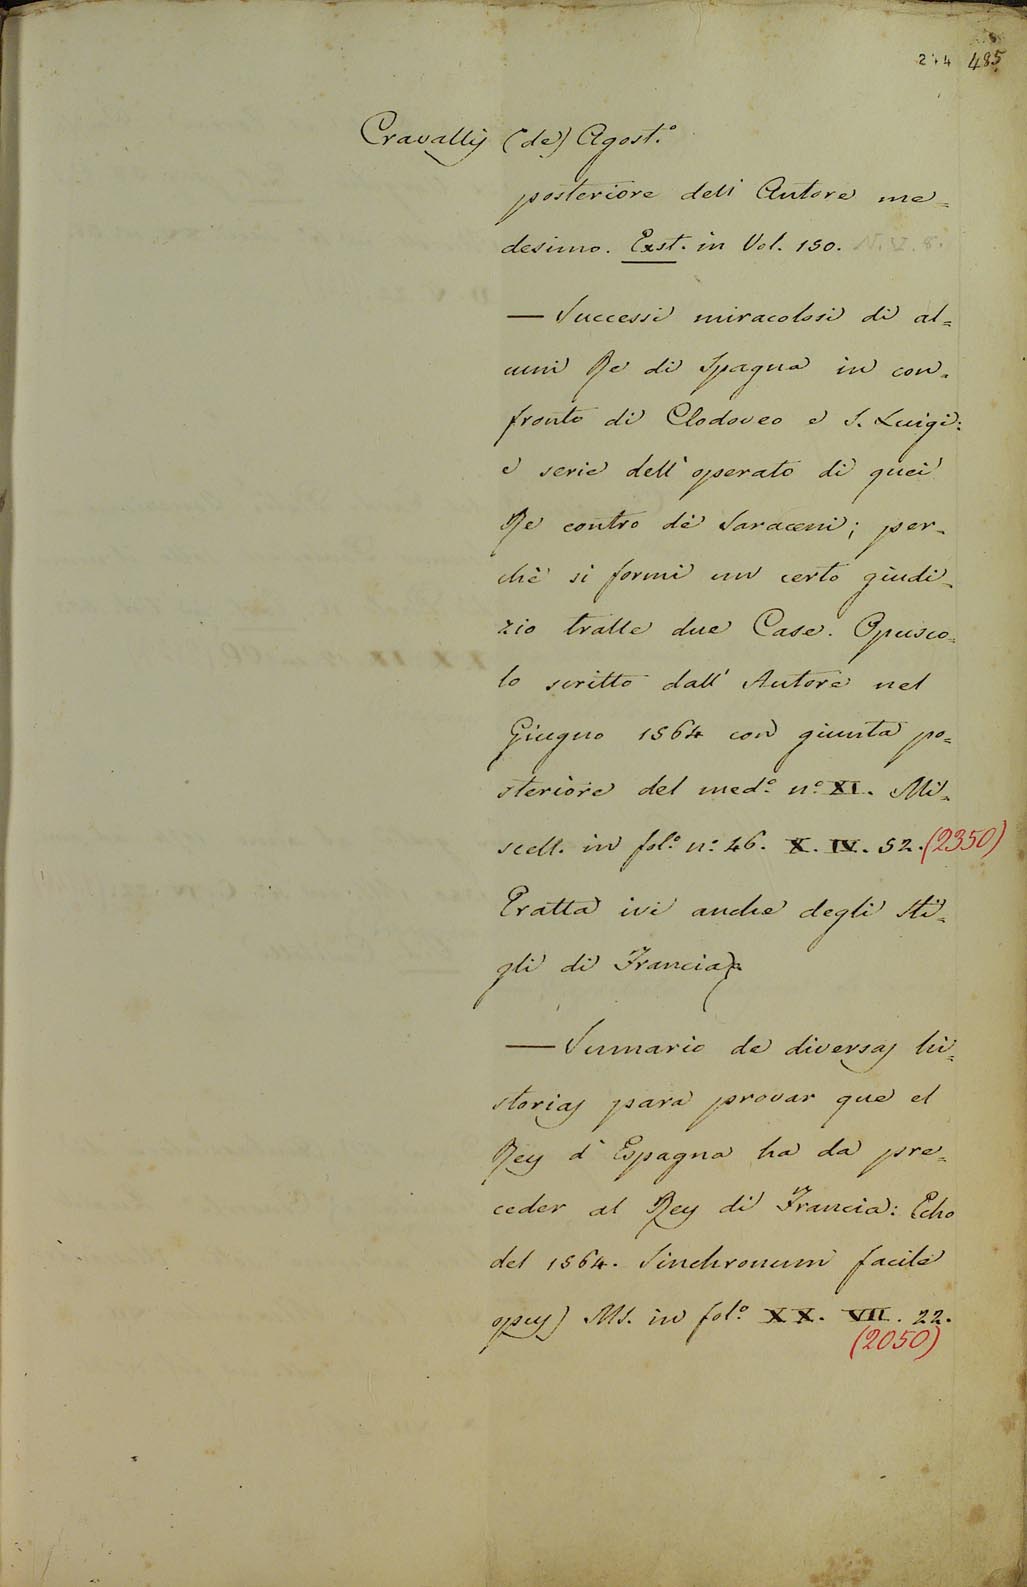 274 485
Cravallij (de) Agost.º
posteriore dell' Autore me=
desimo. Exst. in Vol. 150. N. V. 8.
— Successi miracolosi di al=
cuni Re di Spagna in con=
fronto di Clodoveo e S. Luigi:
e serie dell' operato di quei
Re contro de' Saraceni; per=
chè si formi un certo giudi=
zio tralle due Case. Opusco=
lo scritto dall' Autore nel
Giugno 1564 con giunta po=
steriore del med.º n.º XI. Mi=
scell. in fol.º n.º 46. X. IV. 52. (2350)
Tratta ivi anche degli Sti=
gli di Francia
— Sumario de diversas hi=
storias para provar que el
Rey d' Espagna ha da pre=
ceder al Rey di Francia: Echo
del 1564. Sinchronum facile
opus) MS. in fol.º XX. VII. 22.
(2050)